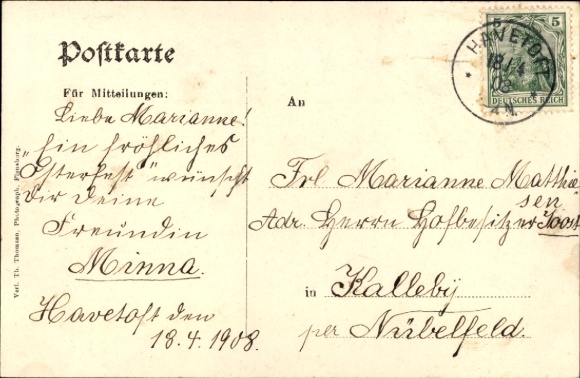 Postkarte
Für Mitteilungen:
Liebe Marianne!
"Ein fröhliches
Osterfest" wünscht
Dir Deine
Freundin
Minna.
Havetoft den
18.4.1908.
An
Frl Marianne Matthie
sen
Adr. Herrn Hofbesitzer Joost
in Kalleby
per Nübelfeld.
5 5
DEUTSCHES REICH
HAVETOFT
18/4
8
N.
Verl. Th. Thomsen, Photograph, Flensburg.